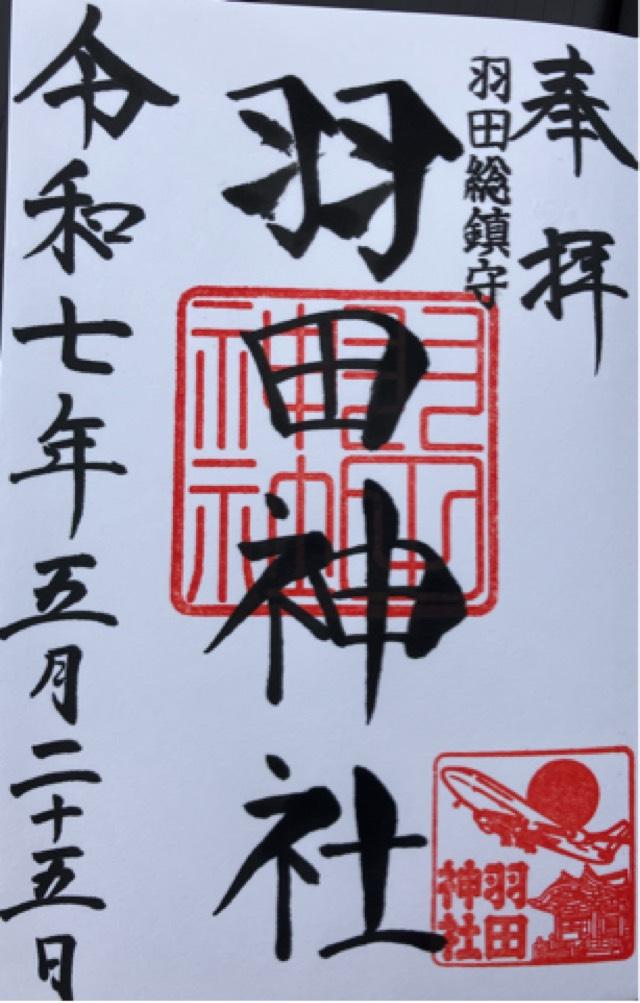 奉拝
羽田総鎮守
羽田神社
令和七年五月二十五日
羽田
神社